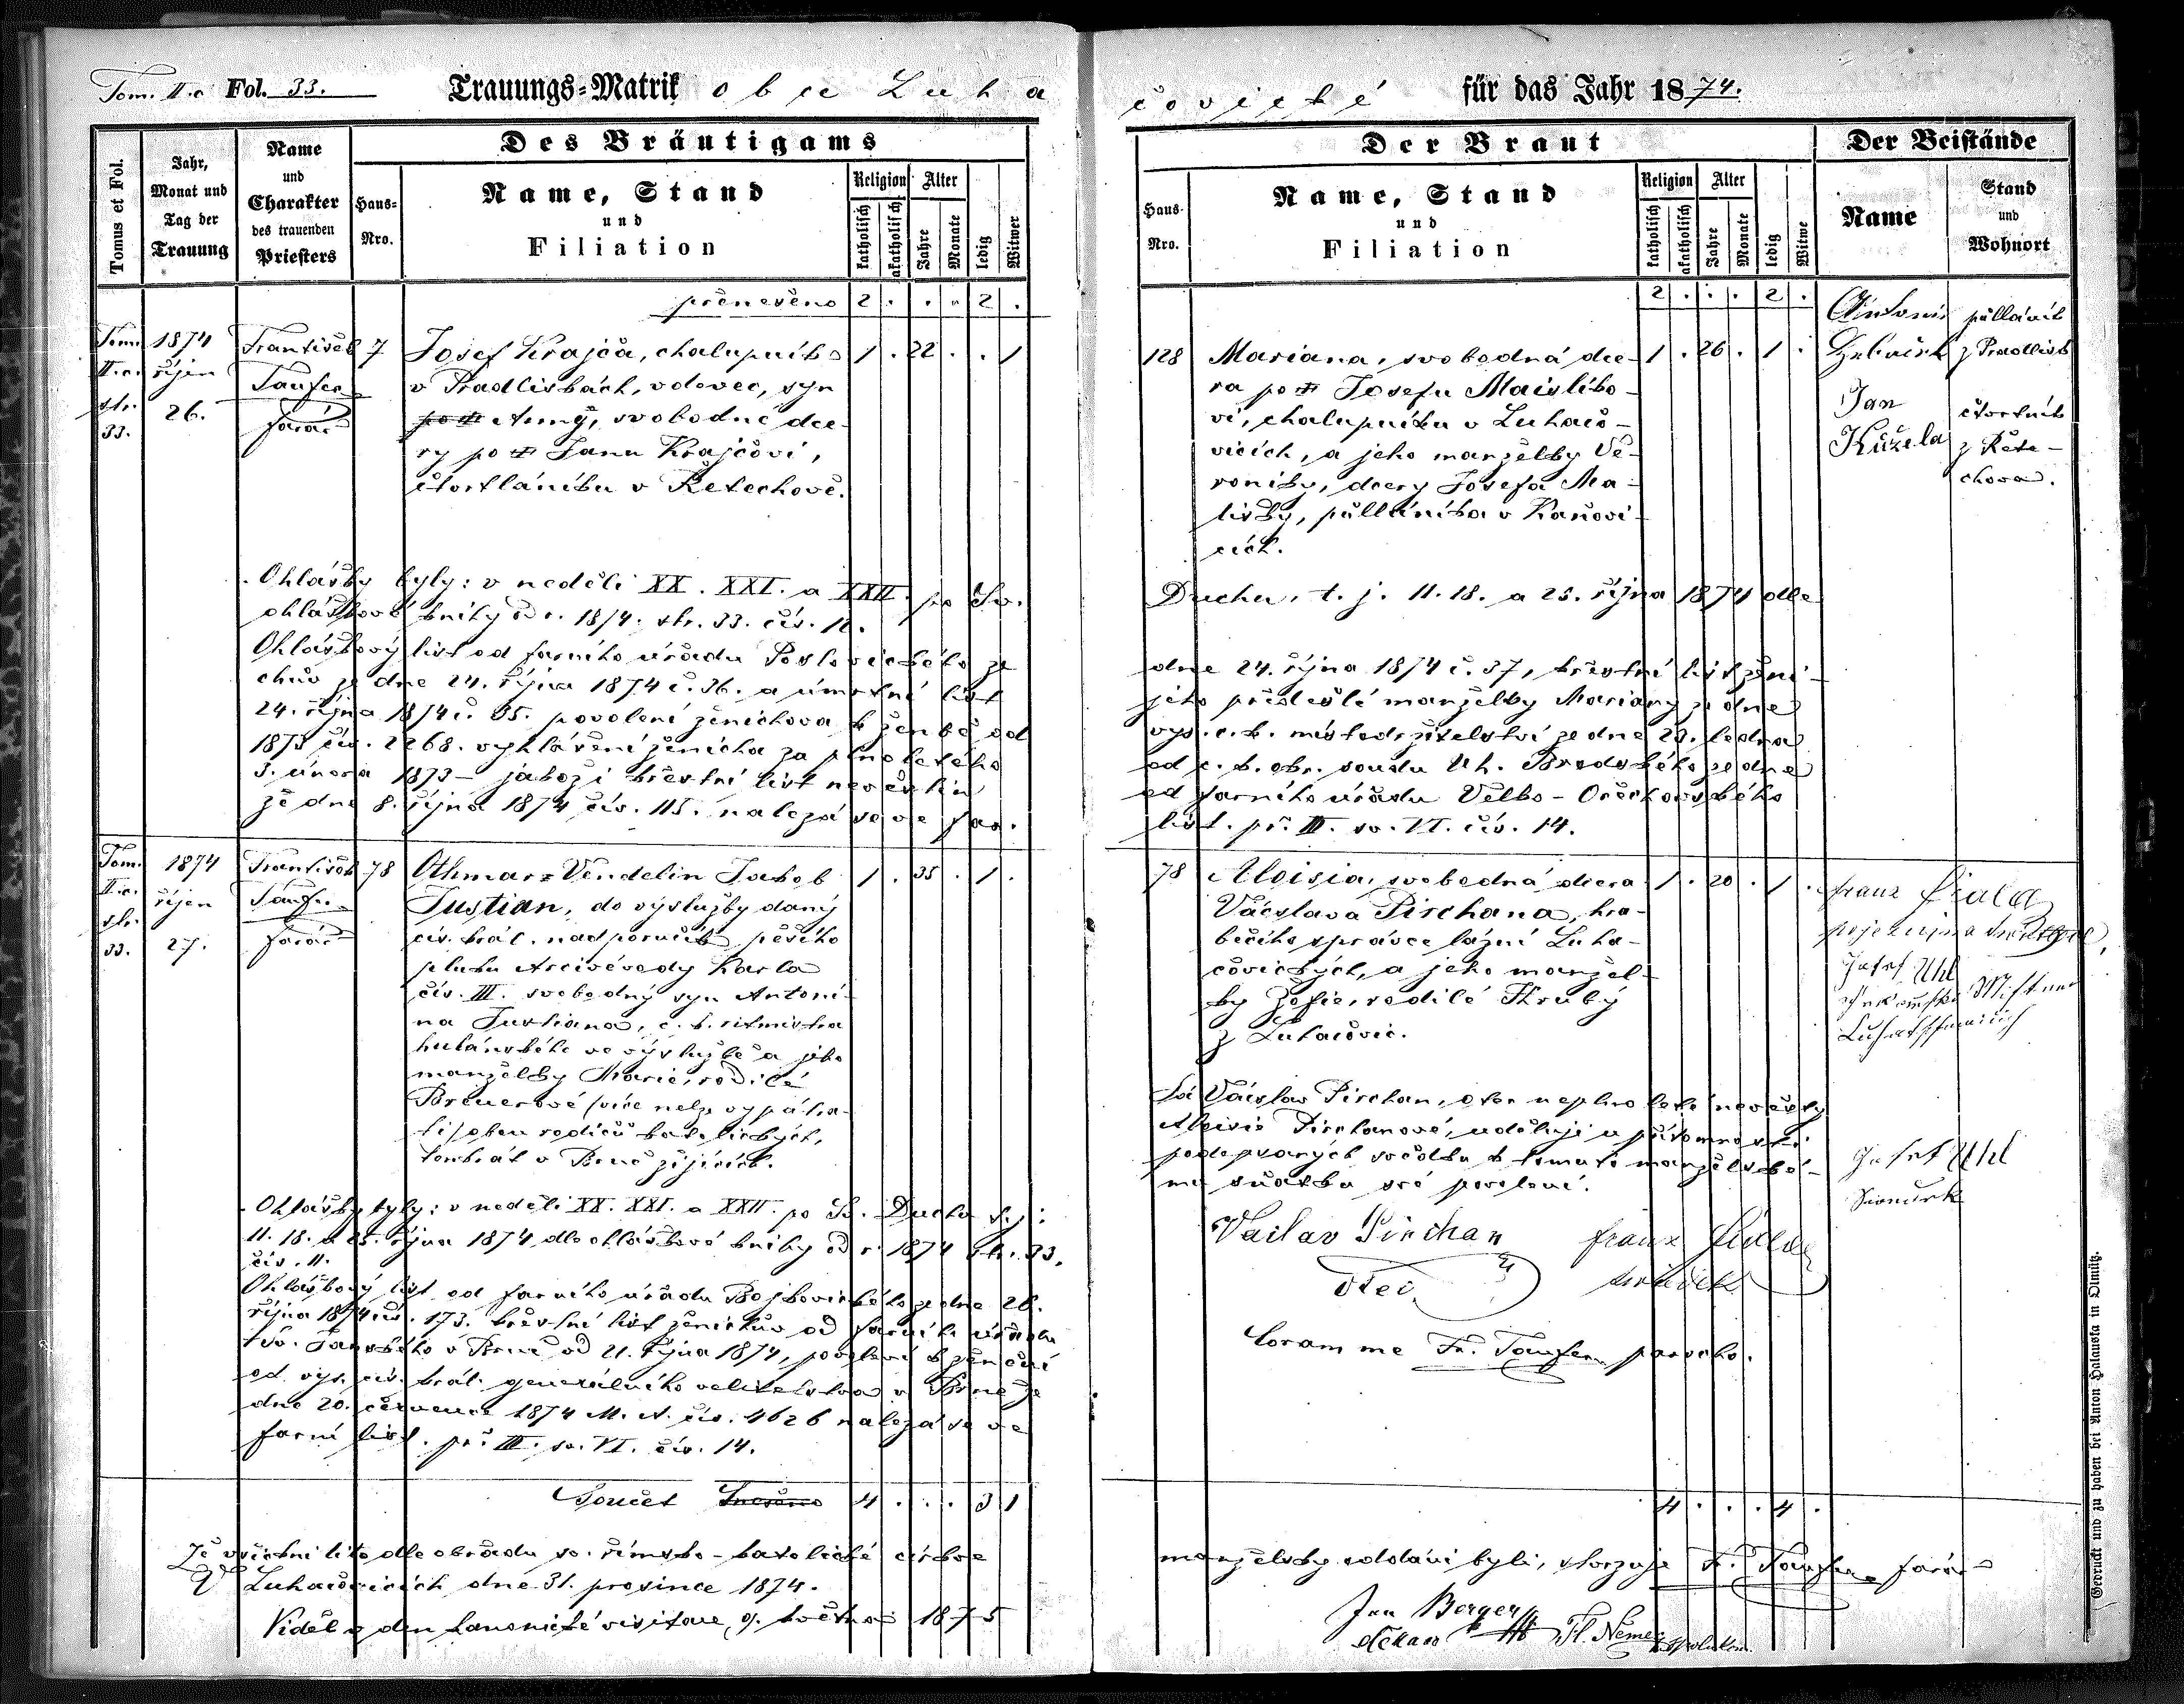 Tom. II.c Fol. 33.
Trauungs-Matrik obce Luha
čovické für das Jahr 1874.
Tomus et Fol.
Jahr,
Monat und
Tag der
Trauung
Name
und
Charakter
des trauenden
Priesters
Des Bräutigams
Haus-
Nro.
Name, Stand
und
Filiation
Religion
katholisch
akatholisch
Alter
Jahre
Monate
ledig
Witwer
přenešeno 2 . . . 2 .
Tom.
II.c.
str.
33.
1874
říjen
26.
František
Taufer
farář
7
Josef Krajča, chalupník
v Pradliskách, vdovec, syn
po Anny, svobodné dce-
ry po Janu Krajčovi,
čtvrtláníku v Řetechově.
1 . 22 . . 1
Ohlášky byly: v neděli XX. XXI. a XXII. po Sv.
ohláškové knihy od r. 1874. str. 33. čís. 12.
Ohláškový list od farního úřadu Pozlovického ze
dne 24. října 1874 č. 36. a úmrtní list
24. října 1874 č. 35. povolení ženichova k ženbě od
1873 čís. 2268. vyhlášení ženicha za plnoletého
3. února 1873 – jakož i křestní list nevěstin
ze dne 8. října 1874 čís. 115. nalezá se ve far.
Tom.
II.c.
str.
33.
1874
říjen
27.
František
Taufer
farář
78
Othmar Vendelin Jakob
Justian, do výslužby daný
cís. král. nadporučík pěšího
pluku Arcivévody Karla
čís. III. svobodný syn Antoni-
na Justiana, c. k. ritmistra
hulánského ve výslužbě a jeho
manželky Marie, rodilé
Breuerové (více nelze vypátra-
ti) obou rodičů katolických,
tenkrát v Brně žijících.
1 . 35 . 1 .
Ohlášky byly: v neděli XX. XXI. a XXII. po Sv. Duchu t.j.:
11. 18. a 25. října 1874 dle ohláškové knihy od r. 1874 str. 33.
čís. 11.
Ohláškový list od farního úřadu Bojkovického ze dne 26.
října 1874 čís. 173. křestní list ženichův od farního úřadu
Sv. Janského v Brně od 21. října 1874, povolení k ženění
od vys. cís. král. generálního velitelstva v Brně ze
dne 20. července 1874 M. A. čís. 4626 nalezá se ve
farní list. př. III. sv. VI. čís. 14.
Součet 4 . . . 3 1
Že všichni tito dle obřadu sv. římsko-katolické církve
V Luhačovicích dne 31. prosince 1874.
Viděl v den kanonické visitace, 9. května 1875
Der Braut
Haus-
Nro.
Name, Stand
und
Filiation
Religion
katholisch
akatholisch
Alter
Jahre
Monate
ledig
Witwe
Der Beistände
Name
Stand
und
Wohnort
2 . . . 2 .
128
Mariana, svobodná dce-
ra po Josefu Maislíko-
vi, chalupníku v Luhačo-
vicích, a jeho manželky Ve-
roniky, dcery Josefa Ma-
lisky, půlláníka v Kaňovi-
cích.
1 . 26 . 1 .
Antonín
půlláník
z Pradlisk
Jan
Kužela
čtvrtník
z Řete-
chova.
Duchu, t. j. 11. 18. a 25. října 1874 dle
dne 24. října 1874 č. 37, křestní list ženi-
jeho předešlé manželky Mariany ze dne
vys. c. k. místodržitelství ze dne 29. ledna
od c. k. okr. soudu Uh. Brodského ze dne
od farního úřadu Velko-Ořechovského
list. př. III. sv. VI. čís. 14.
78
Aloisia, svobodná dcera
Václava Pirchana, hra-
běcího správce lázní Luha-
čovických, a jeho manžel-
ky Žofie, rodilé Hrubý
z Luhačovic.
1 . 20 . 1 .
Franz Fiala
Josef Uhl
Já Václav Pirchan, otec neplnoleté nevěsty
Aloisie Pirchanové, uděluji u přítomnosti
podepsaných svědků k tomuto manželské-
mu sňatku své povolení.
Josef Uhl
Vaclav Pirchan
otec
Franz Fiala
svědek
Coram me Fr. Taufer parocho.
4 . . . 4 .
manželsky oddáni byli, stvrzuje Fr. Taufer farář
Jan Berger
děkan
Fl. Němec
Gedruckt und zu haben bei Anton Halauska in Olmütz.